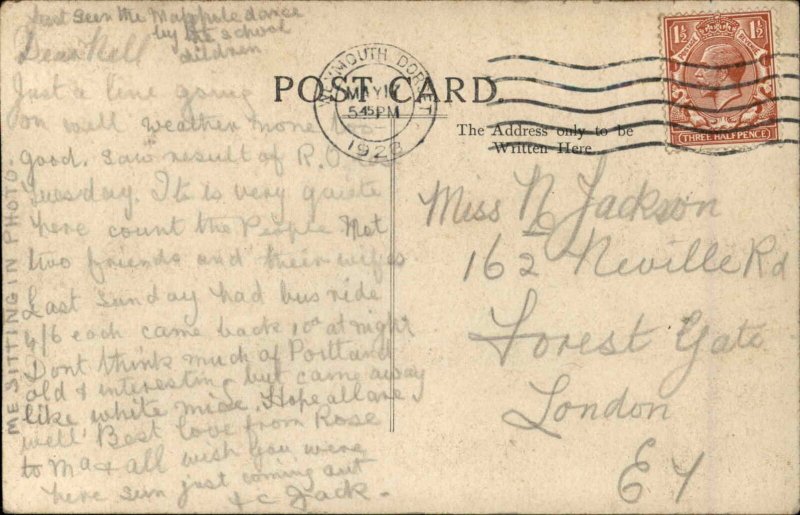 Just seen the Maypole dance
by the school
children
Dear Nell
Just a line going
on well weather none too
good. saw result of R.O
Tuesday. It is very quiete
here count the People Met
two friends and their wifes
Last Sunday had bus ride
4/6 each came back 10 at night
Dont think much of Portland
old & interesting but came away
like white mice. Hope all are
well Best love from Rose
to Ma & all wish you were
here sun just coming out
& c Jack.
ME SITTING IN PHOTO
POST CARD.
The Address only to be
Written Here.
WEYMOUTH DORSET
MAY 17
5.45 PM
1928
POSTAGE REVENUE
1½ 1½
THREE HALFPENCE
Miss N Jackson
162 Neville Rd
Forest Gate
London
E 7